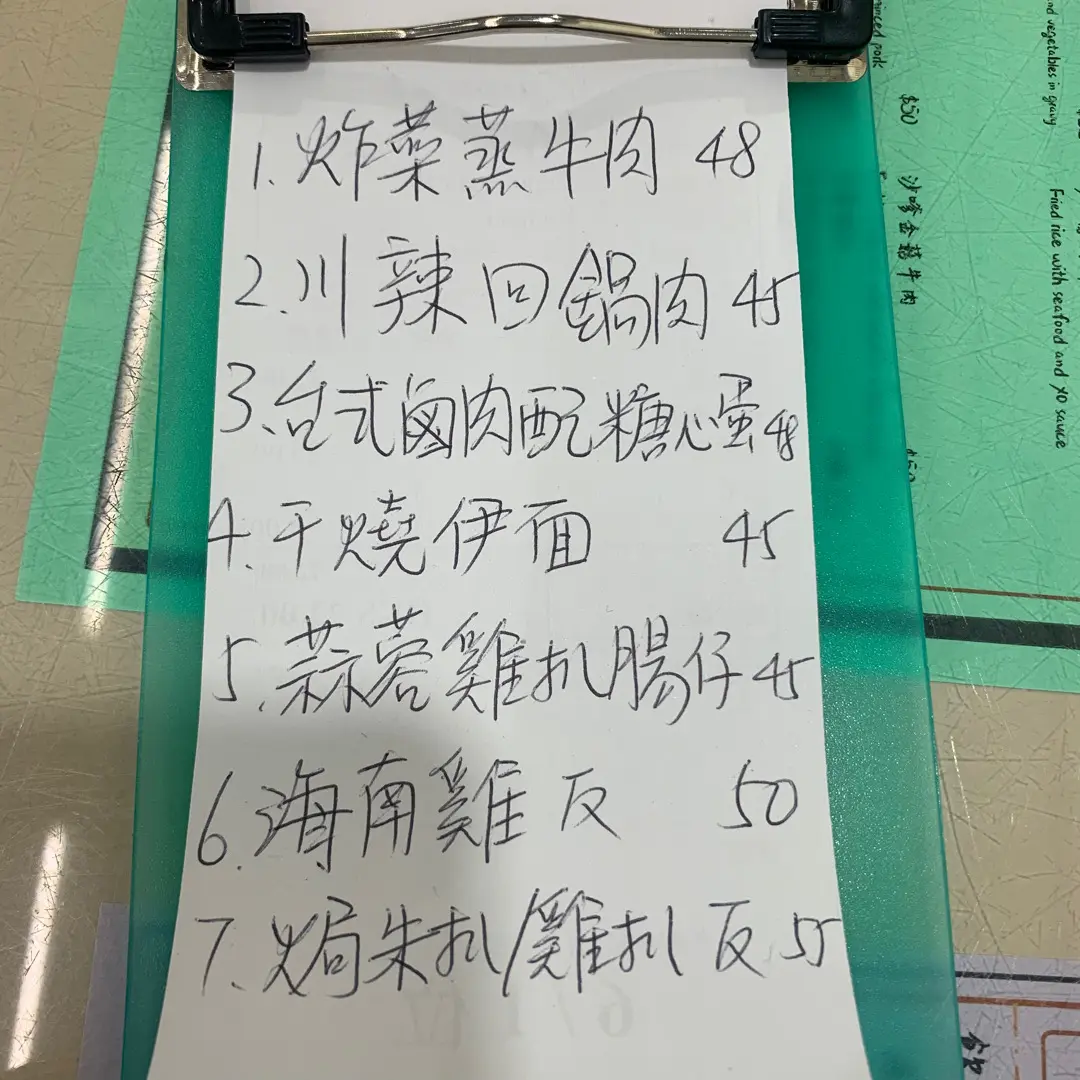 1. 炸菜蒸牛肉 48
2. 川辣回鍋肉 45
3. 台式鹵肉配糖心蛋 48
4. 干燒伊面 45
5. 蒜蓉雞扒腸仔 45
6. 海南雞反 50
7. 焗朱扒/雞扒反 55
minced pork
$50 沙嗲金菇牛肉
and vegetables in gravy
Fried rice with seafood and XO sauce
$50